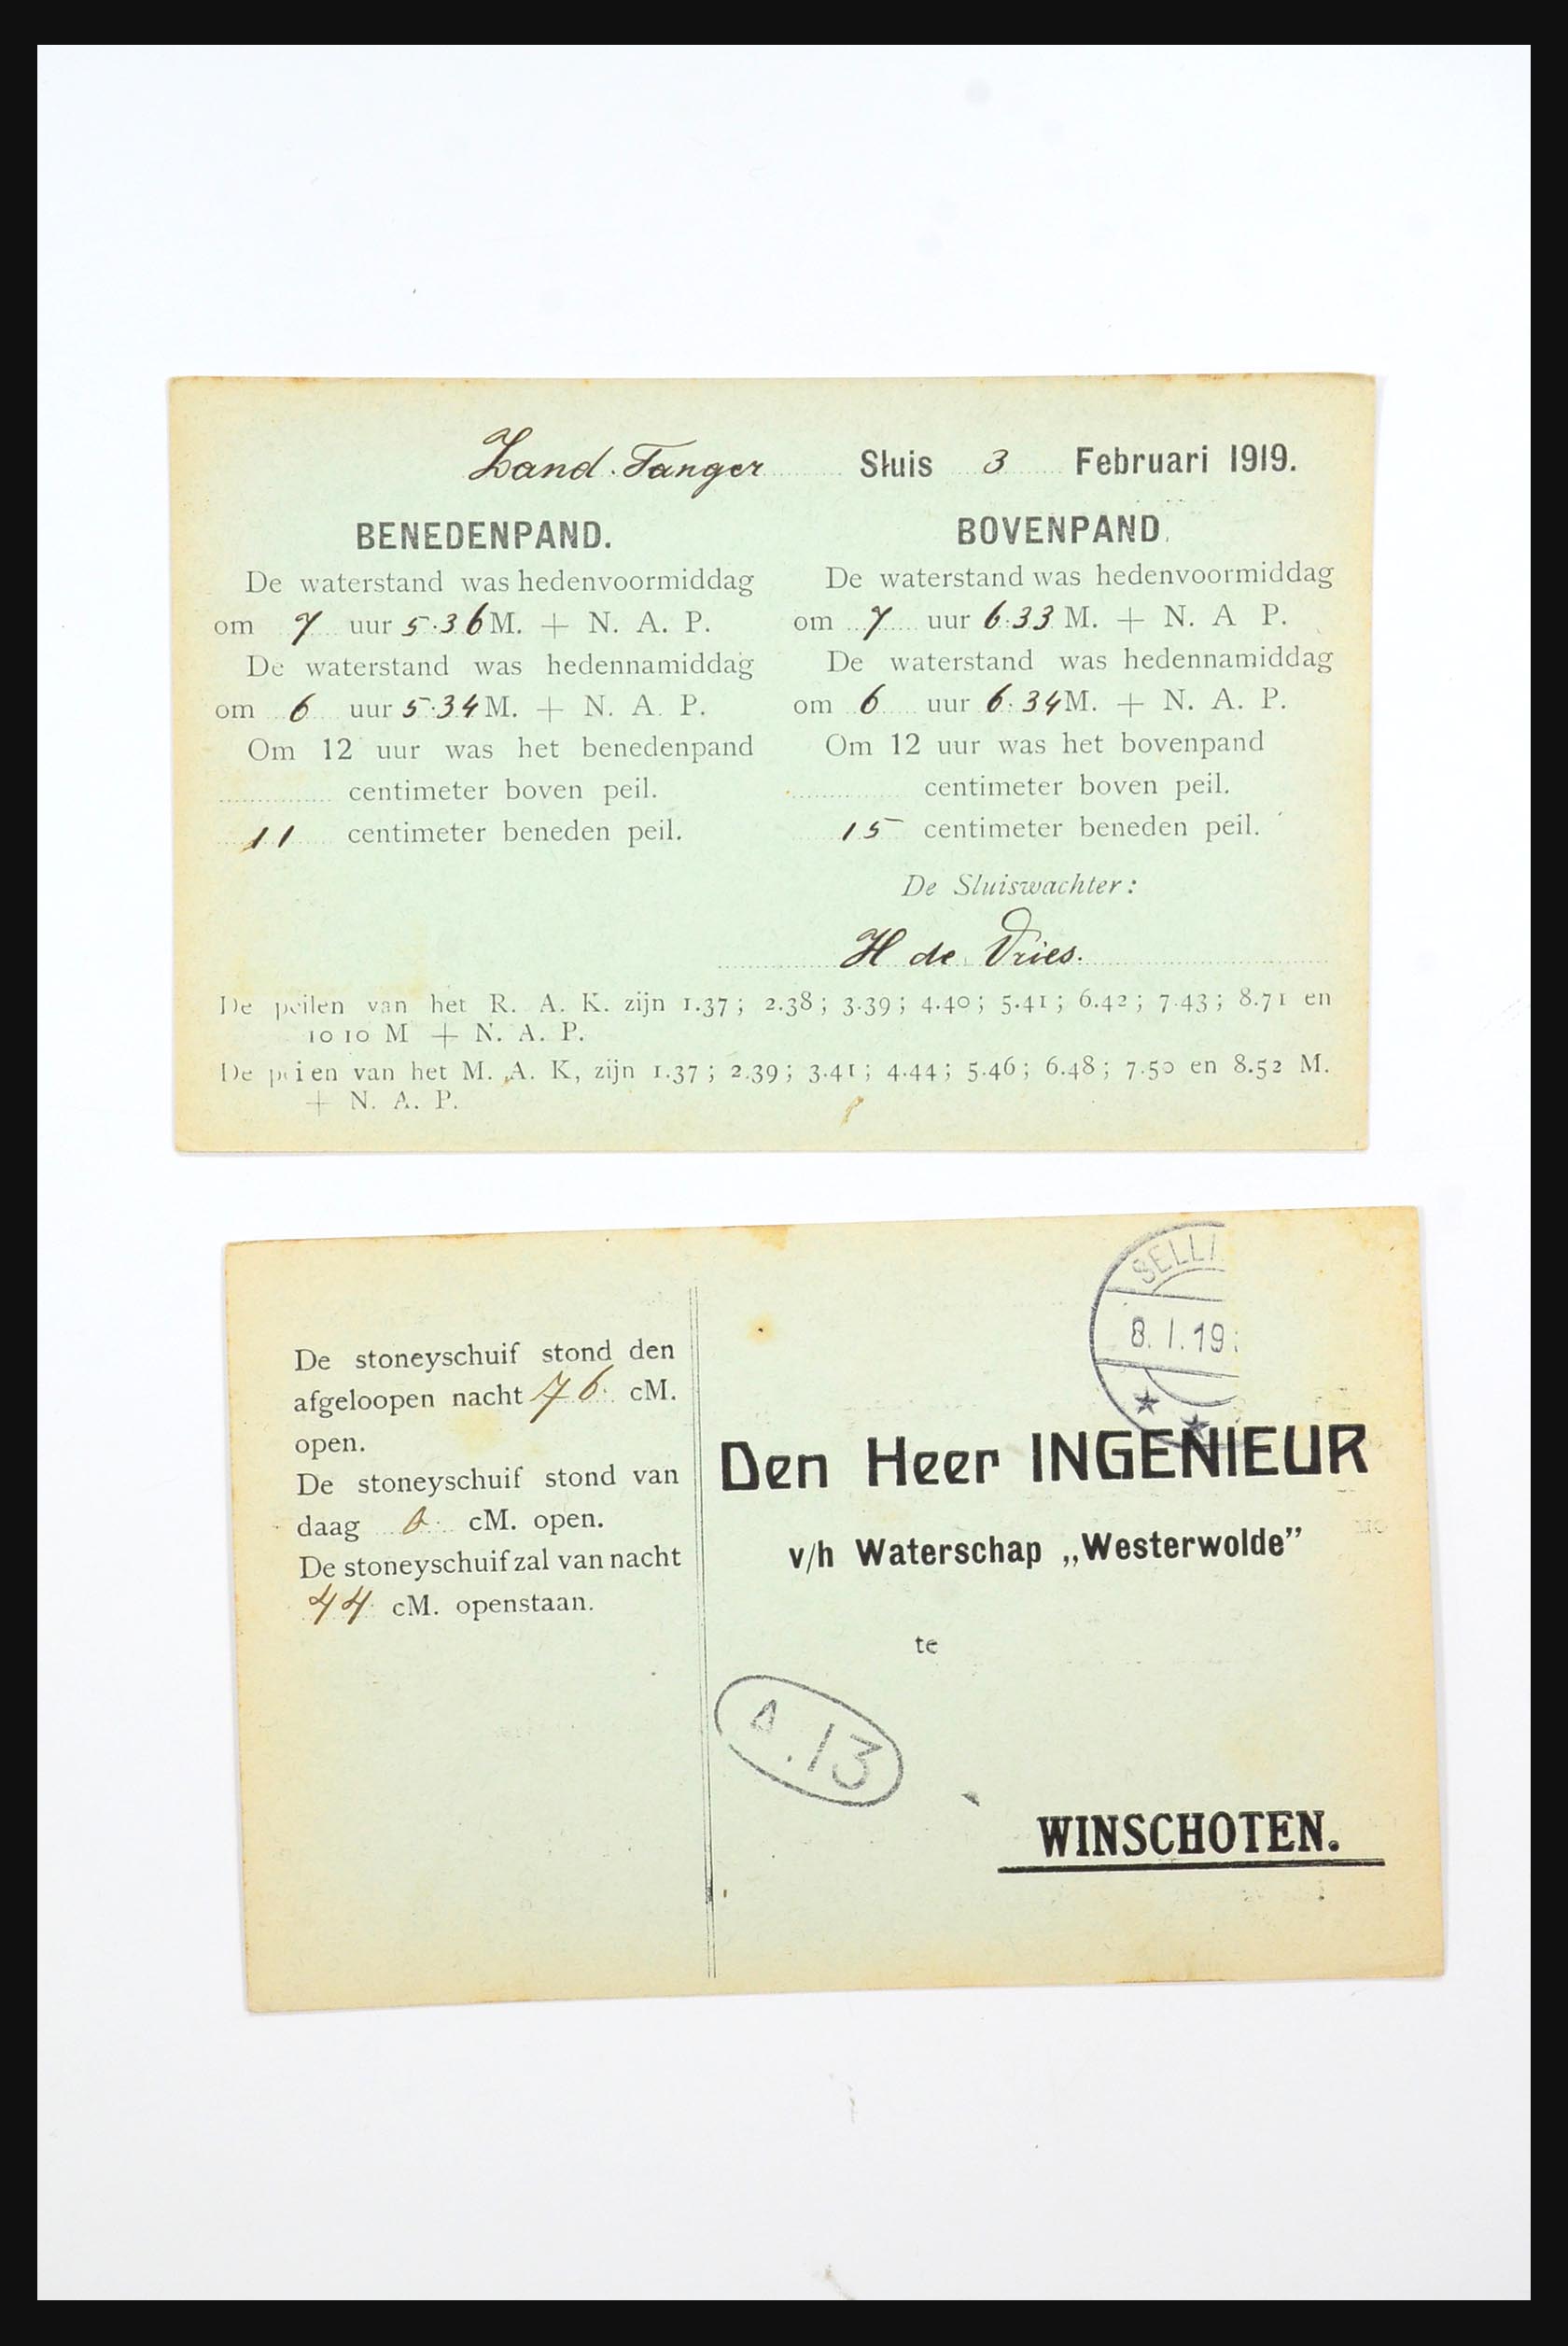 Zand. Tanger Sluis 3 Februari 1919.
BENEDENPAND.
De waterstand was hedenvoormiddag
om 7 uur 5.36 M. + N. A. P.
De waterstand was hedennamiddag
om 6 uur 5.34 M. + N. A. P.
Om 12 uur was het benedenpand
centimeter boven peil.
11 centimeter beneden peil.
BOVENPAND.
De waterstand was hedenvoormiddag
om 7 uur 6.33 M. + N. A P.
De waterstand was hedennamiddag
om 6 uur 6.34 M. + N. A. P.
Om 12 uur was het bovenpand
centimeter boven peil.
15 centimeter beneden peil.
De Sluiswachter:
H de Vries.
De peilen van het R. A. K. zijn 1.37; 2.38; 3.39; 4.40; 5.41; 6.42; 7.43; 8.71 en
10 10 M + N. A. P.
De peien van het M. A. K, zijn 1.37; 2.39; 3.41; 4.44; 5.46; 6.48; 7.50 en 8.52 M.
+ N. A. P.
De stoneyschuif stond den
afgeloopen nacht 76 cM.
open.
De stoneyschuif stond van
daag cM. open.
De stoneyschuif zal van nacht
44 cM. openstaan.
SELLI
8. I. 19
Den Heer INGENIEUR
v/h Waterschap „Westerwolde”
te
A.13
WINSCHOTEN.